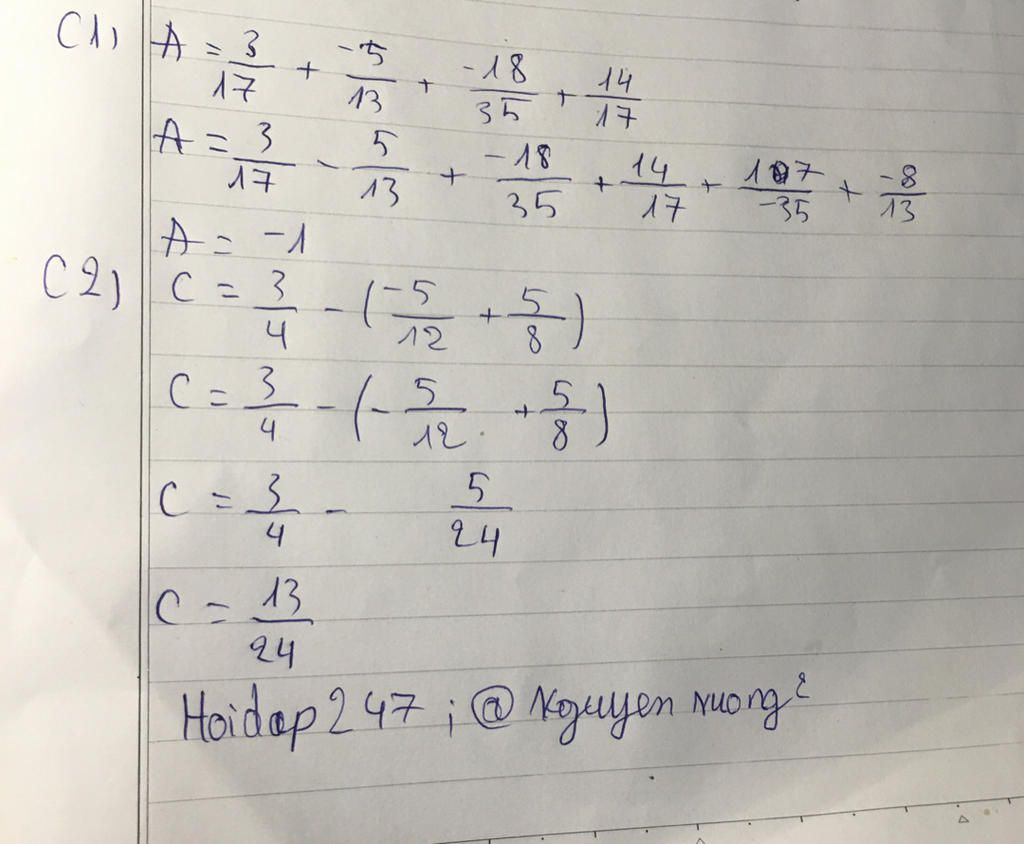 C1) A = 3/17 + -5/13 + -18/35 + 14/17
A = 3/17 - 5/13 + -18/35 + 14/17 + 17/-35 + -8/13
A = -1
C2) C = 3/4 - (-5/12 + 5/8)
C = 3/4 - (- 5/12 + 5/8)
C = 3/4 - 5/24
C = 13/24
Hoidap247 ; @Nguyen